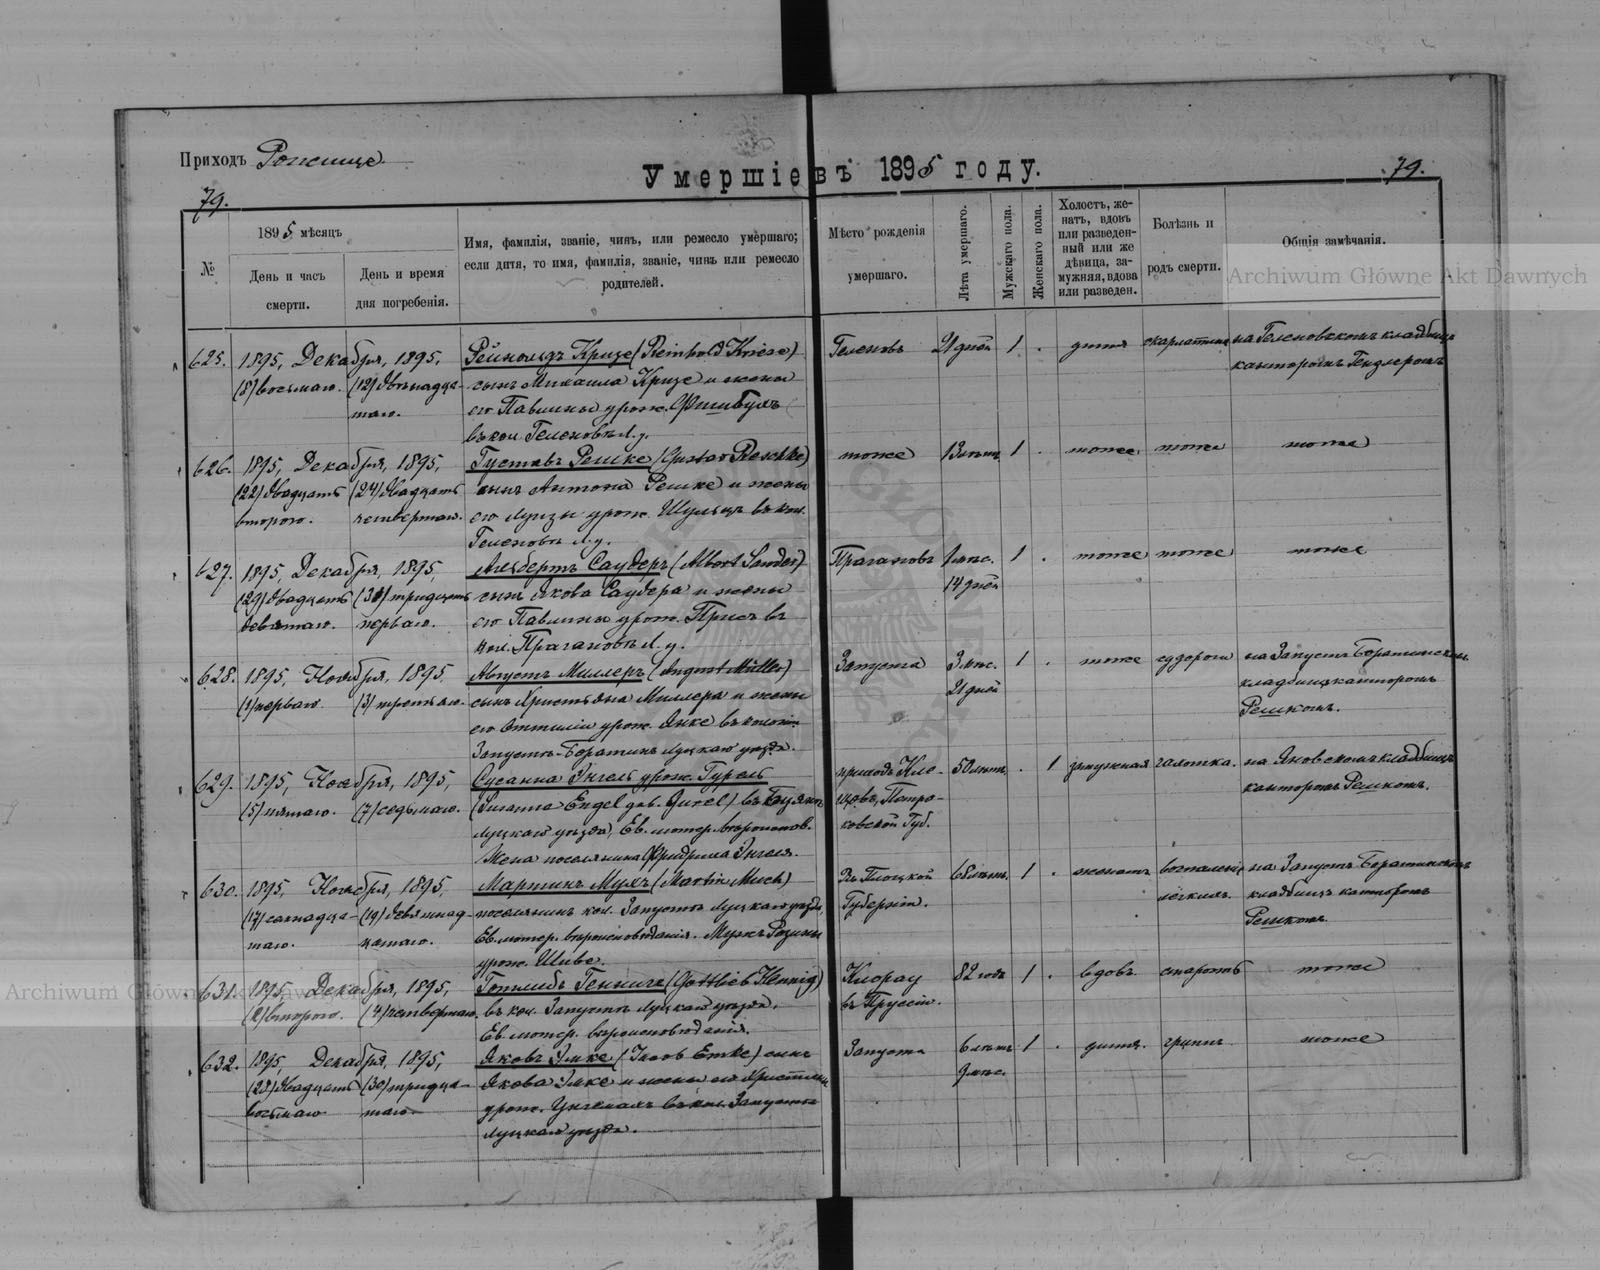 Приходъ Рожище
Умершіе въ 1895 году.
79.
79.
№
1895 мѣсяцъ
День и часъ
смерти.
День и время
дня погребенія.
Имя, фамилія, званіе, чинъ, или ремесло умершаго;
если дитя, то имя, фамилія, званіе, чинъ или ремесло
родителей.
Мѣсто рожденія
умершаго.
Лѣта умершаго.
Мужскаго пола.
Женскаго пола.
Холостъ, же-
натъ, вдовъ
или разведен-
ный или же
дѣвица, за-
мужняя, вдова
или разведен.
Болѣзнь и
родъ смерти.
Общія замѣчанія.
Archiwum Główne Akt Dawnych
625. 1895, Декабря, 1895, Рейнольдъ Кризе (Reinhold Kriese) Геленовъ 21 дней 1 . дитя скарлатина на Геленовскомъ кладбищѣ
(8) восьмаго. (12) двѣнадца- сынъ Михаила Кризе и жены канторомъ
таго. его Павлины урож.
въ кол. Геленовъ Л. у.
626. 1895, Декабря, 1895, Густавъ Решке (Gustav Reschke) тоже 13 лѣтъ 1 . тоже тоже тоже
(22) двадцать (24) двадцать сынъ Антона Решке и жены
второго. четвертаго. его Луизы урож. Шульцъ въ кол.
Геленовъ Л. у.
627. 1895, Декабря, 1895, Альбертъ Саудеръ (Albert Sauder) Прагановъ 1 мѣс. 1 . тоже тоже тоже
(29) двадцать (31) тридцать сынъ Якова Саудера и жены 14 дней
девятаго. перваго. его Павлины урож. въ
кол. Прагановъ Л. у.
628. 1895, Ноября, 1895, Августъ Миллеръ (August Müller) Запуста 3 мѣс. 1 . тоже судороги на Запустъ Боратинскомъ
(1) перваго. (3) третьяго. сынъ Христьяна Миллера и жены 21 дней кладбищѣ канторомъ
его Оттиліи урож. Янке въ колоніи Решкомъ.
Запустъ-Боратинъ Луцкаго уѣзда.
629. 1895, Ноября, 1895, Сусанна Энгель урож. Гурель приходъ Кле- 50 лѣтъ . 1 замужняя чахотка. на Яновскомъ кладбищѣ
(5) пятаго. (7) седьмаго. (Susanna Engel geb. Gurel) въ Петро- канторомъ Решкомъ.
Луцкаго уѣзда, Ев. лютер. вѣроисповѣд. ковской Губ.
Жена поселянина Фридриха Энгеля.
630. 1895, Ноября, 1895, Мартинъ Мухъ (Martin Much) Въ Плоцкой 68 лѣтъ. 1 . женатъ воспаленіе на Запустъ Боратинскомъ
(17) семнадца- (19) девятнад- поселянинъ кол. Запустъ Луцкаго уѣзда, Губерніи. легкихъ. кладбищѣ канторомъ
таго. цатаго. Ев. лютер. вѣроисповѣданія. Мужъ Розины Решкомъ.
урож. Шиве.
631. 1895, Декабря, 1895, Готлибъ Геннигъ (Gottlieb Hennig) 82 года 1 . вдовъ старость тоже
(2) второго. (4) четвертаго. въ кол. Запустъ Луцкаго уѣзда. въ Пруссіи.
Ев. лютер. вѣроисповѣданія.
632. 1895, Декабря, 1895, Яковъ Эмке (Jacob Emke) сынъ Запуста 6 лѣтъ 1 . дитя. грипъ тоже
(28) двадцать (30) тридца- Якова Эмке и жены его Христины 9 мѣс.
восьмаго таго урож. въ кол. Запустъ
Луцкаго уѣзда.
Archiwum Główne Akt Dawnych